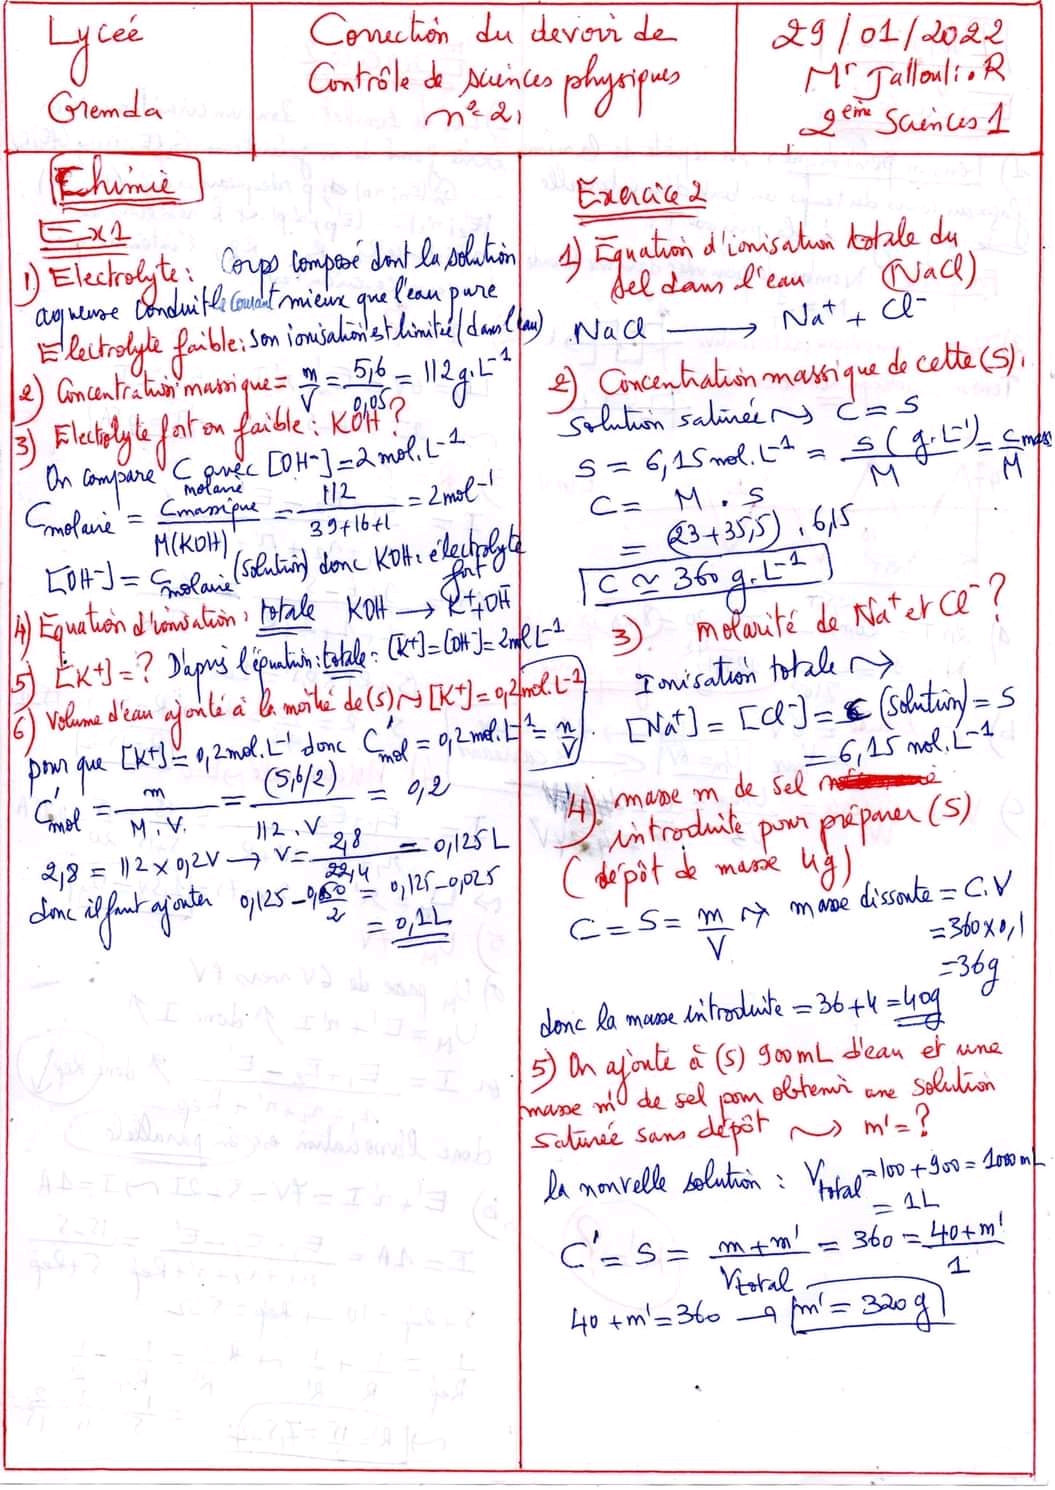 Lyceé
Gremda
Correction du devoir de
Contrôle de sciences physiques
n° 2,
29/01/2022
Mr Jallouli.R
2ème Sciences 1
Chimie
Ex1
1) Electrolyte : Corps composé dont la solution
aqueuse conduit le courant mieux que l'eau pure
Electrolyte faible : son ionisation est limitée (dans l'eau)
2) Concentration massique = m/V = 5,6/0,05 = 112 g.L⁻¹
3) Electrolyte fort ou faible : KOH ?
On compare C molaire avec [OH⁻] = 2 mol.L⁻¹
C molaire = C massique / M(KOH) = 112 / 39+16+1 = 2 mol⁻¹
[OH⁻] = C molaire (solution) donc KOH : électrolyte fort
4) Equation d'ionisation : totale KOH → K⁺ + OH⁻
5) [K⁺] = ? D'après l'équation : totale : [K⁺] = [OH⁻] = 2 mol L⁻¹
6) Volume d'eau ajouté à la moitié de (s) ⇝ [K⁺] = 0,2 mol.L⁻¹
pour que [K⁺] = 0,2 mol.L⁻¹ donc C'mol = 0,2 mol.L⁻¹ = n/V
C'mol = m / M.V. = (5,6/2) / 112.V = 0,2
2,8 = 112 x 0,2V → V = 2,8 / 22,4 = 0,125 L
donc il faut ajouter 0,125 - 0,050/2 = 0,125 - 0,025
= 0,1L
Exercice 2
1) Equation d'ionisation totale du
sel dans l'eau (NaCl)
NaCl → Na⁺ + Cl⁻
2) Concentration massique de cette (S).
Solution saturée ⇝ C = S
S = 6,15 mol.L⁻¹ = s (g.L⁻¹) / M = C mass / M
C = M . s
= (23+35,5) . 6,15
C ≃ 360 g.L⁻¹
3) molarité de Na⁺ et Cl⁻ ?
Ionisation totale ⇝
[Na⁺] = [Cl⁻] = C (solution) = S
= 6,15 mol.L⁻¹
4) masse m de sel
introduite pour préparer (S)
(dépôt de masse 4g)
C = S = m/V ⇝ masse dissoute = C.V
= 360 x 0,1
= 36g
donc la masse introduite = 36 + 4 = 40g
5) On ajoute à (s) 900 mL d'eau et une
masse m' de sel pour obtenir une solution
saturée sans dépôt ⇝ m' = ?
la nouvelle solution : V total = 100 + 900 = 1000 mL
= 1L
C' = S = m+m' / V total = 360 = 40+m' / 1
40 + m' = 360 → m' = 320 g